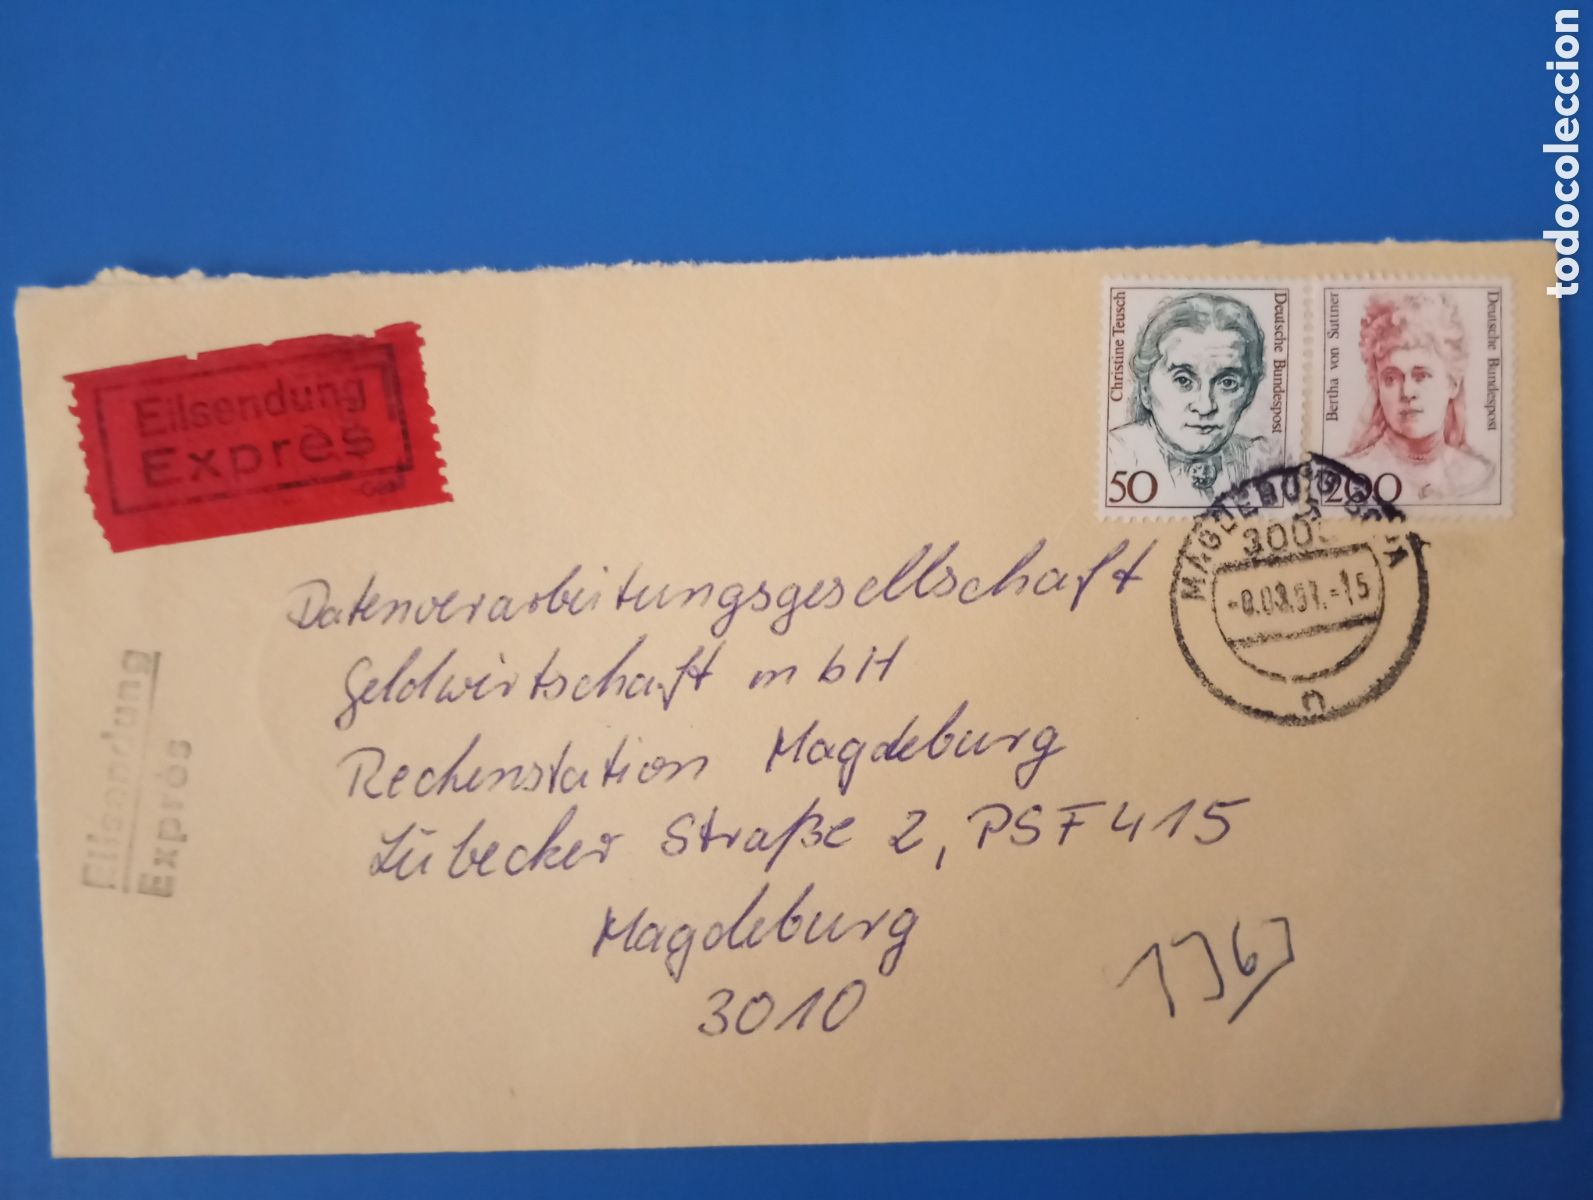 todocoleccion
Eilsendung
Exprès
Christine Teusch
Deutsche Bundespost
50
Bertha von Suttner
Deutsche Bundespost
200
MAGDEBURG
300
n
Datenverarbeitungsgesellschaft
Geldwirtschaft mbH
Rechenstation Magdeburg
Lübecker Straße 2, PSF 415
Magdeburg
3010
Eilsendung
Exprès